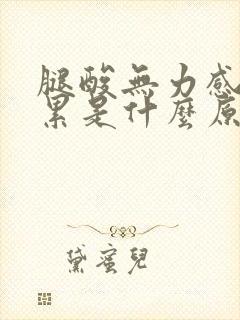 腿酸無力感
累是什麼原
黛蜜兒